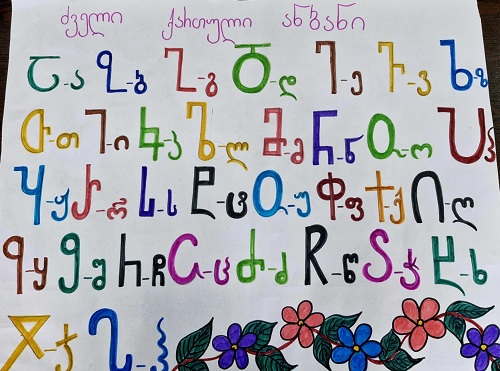 ძველი ქართული ანბანი
Ⴀ-ა Ⴁ-ბ Ⴂ-გ Ⴃ-დ Ⴄ-ე Ⴅ-ვ Ⴆ-ზ
Ⴇ-თ Ⴈ-ი Ⴉ-კ Ⴊ-ლ Ⴋ-მ Ⴌ-ნ Ⴍ-ო Ⴎ-პ
Ⴏ-ჟ Ⴐ-რ Ⴑ-ს Ⴒ-ტ Ⴓ-უ Ⴔ-ფ Ⴕ-ქ Ⴖ-ღ
Ⴗ-ყ Ⴘ-შ Ⴙ-ჩ Ⴚ-ც Ⴛ-ძ Ⴜ-წ Ⴝ-ჭ Ⴞ-ხ
Ⴟ-ჯ Ⴠ-ჰ